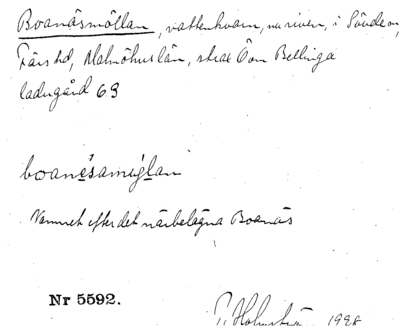 Boanäsmöllan, vattenkvarn, nu riven, i Sövde sn,
Färs hd, Malmöhus län, strax Öom Bellinga
ladugård 63
boanẹ́samiǫ̀lan
Namnet efter det närbelägna Boanäs
Nr 5592.
1928